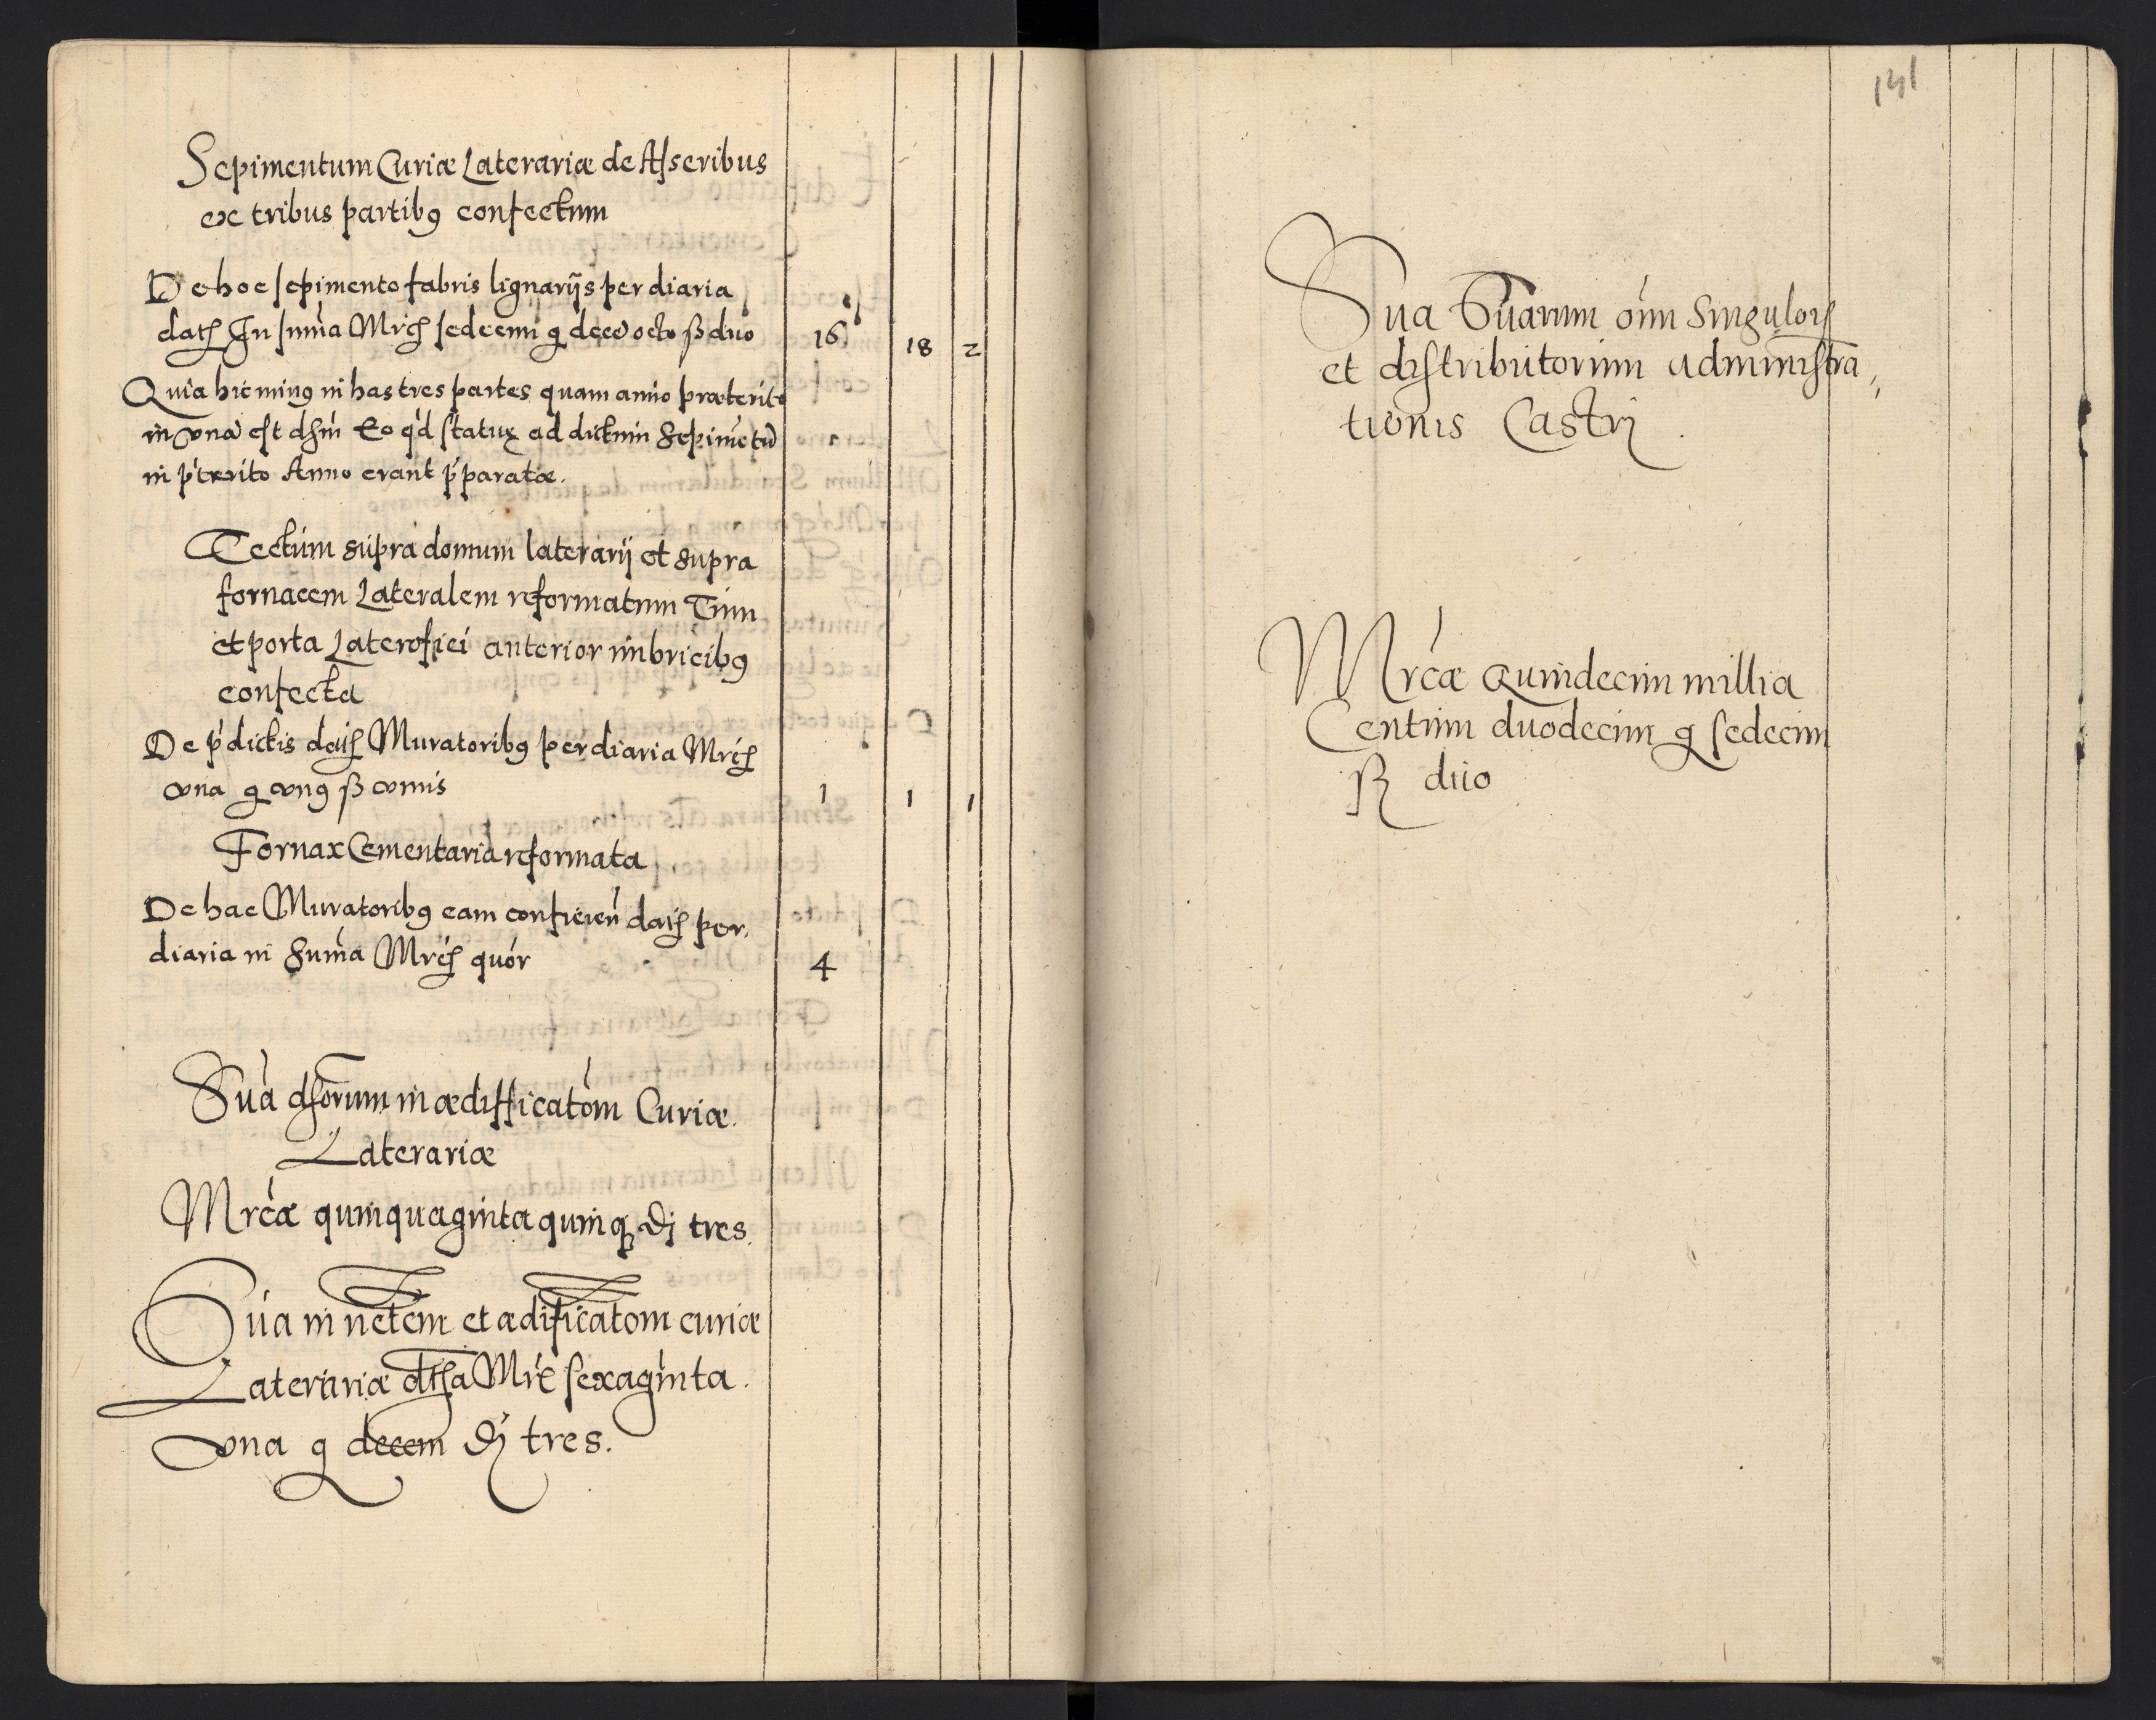 Sepimentum Curiæ Laterariæ de Asseribus
ex tribus partibꝰ confectum
De hoc sepimento fabris lignarijs per diaria
datꝭ In sum̃a Mrcꝭ sedecim g̃ decẽ octo ß duo 16 18 2
Quia hic minꝰ in has tres partes quam anno præterito
in vnã est dh̃m Eo q̇d statuæ ad dictum Sepimẽtũ
in p̃terito Anno erant p̃paratæ.
Tectum supra domum laterarij et supra
fornacem Lateralem reformatum Tum
et porta Laterificj anterior imbricibꝰ
confecta
De p̃dictis datꝭ Muratoribꝰ per diaria Mrcꝭ
vna g̃ vnꝰ ß vnus 1 1 1
Fornax Cementaria reformata
De hac Muratoribꝰ eam conficieñ datꝭ per
diaria in Sum̃a Mrcꝭ quõr 4
Sũa dh̃orum in ædifficatõm Curiæ
Laterariæ
Mrcæ quinquaginta quinqꝫ dj tres
Sũa in nc̃tem et ædificatõm curiæ
Laterariæ dh̃a Mrc̃ sexaginta
vna g̃ decem dj tres.
141
Sũa Sũarum oĩm Singulorꝭ
et distributorum administra„
tionis Castri
Mrcæ Quindecim millia
Centum duodecim g̃ sedecim
ß duo